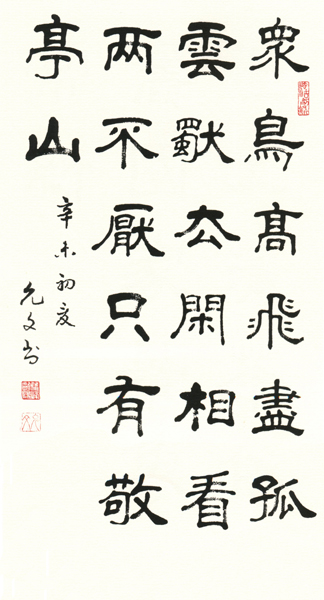 眾鳥高飛盡孤
雲獨去閑相看
两不厭只有敬
亭山
辛未初夏
允文书